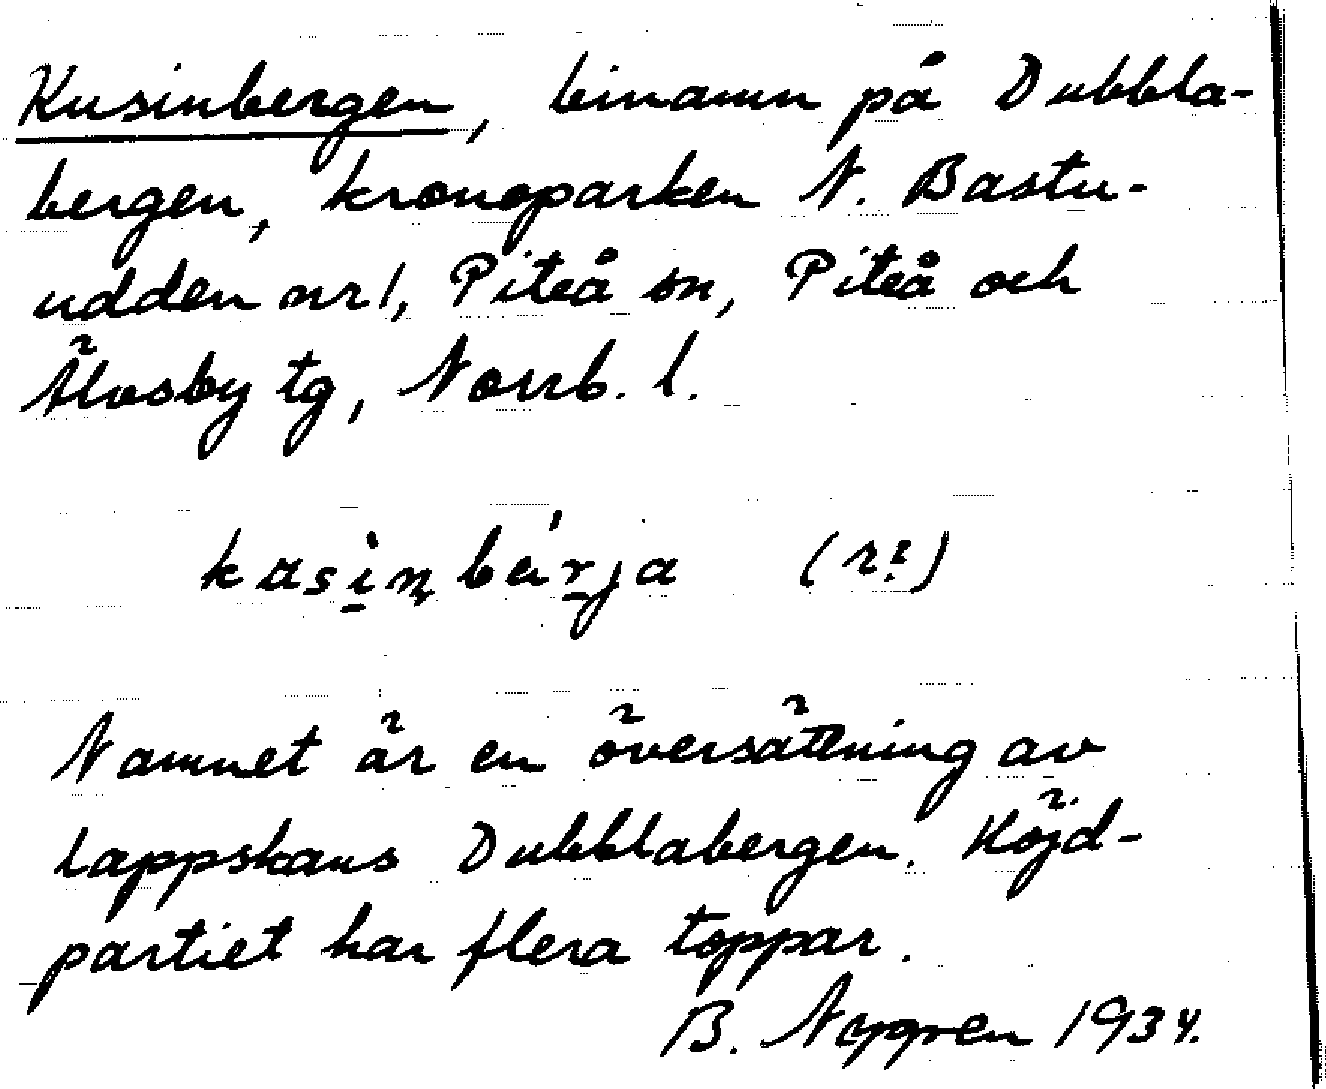 Kusinbergen, binamn på Dubbla-
bergen, kronoparken N. Bastu-
udden nr 1, Piteå sn, Piteå och
Älvsby tg, Norrb. l.
Namnet är en översättning av
lappskans Dubblabergen. Höjd-
partiet har flera toppar.
B. Nygren 1934.